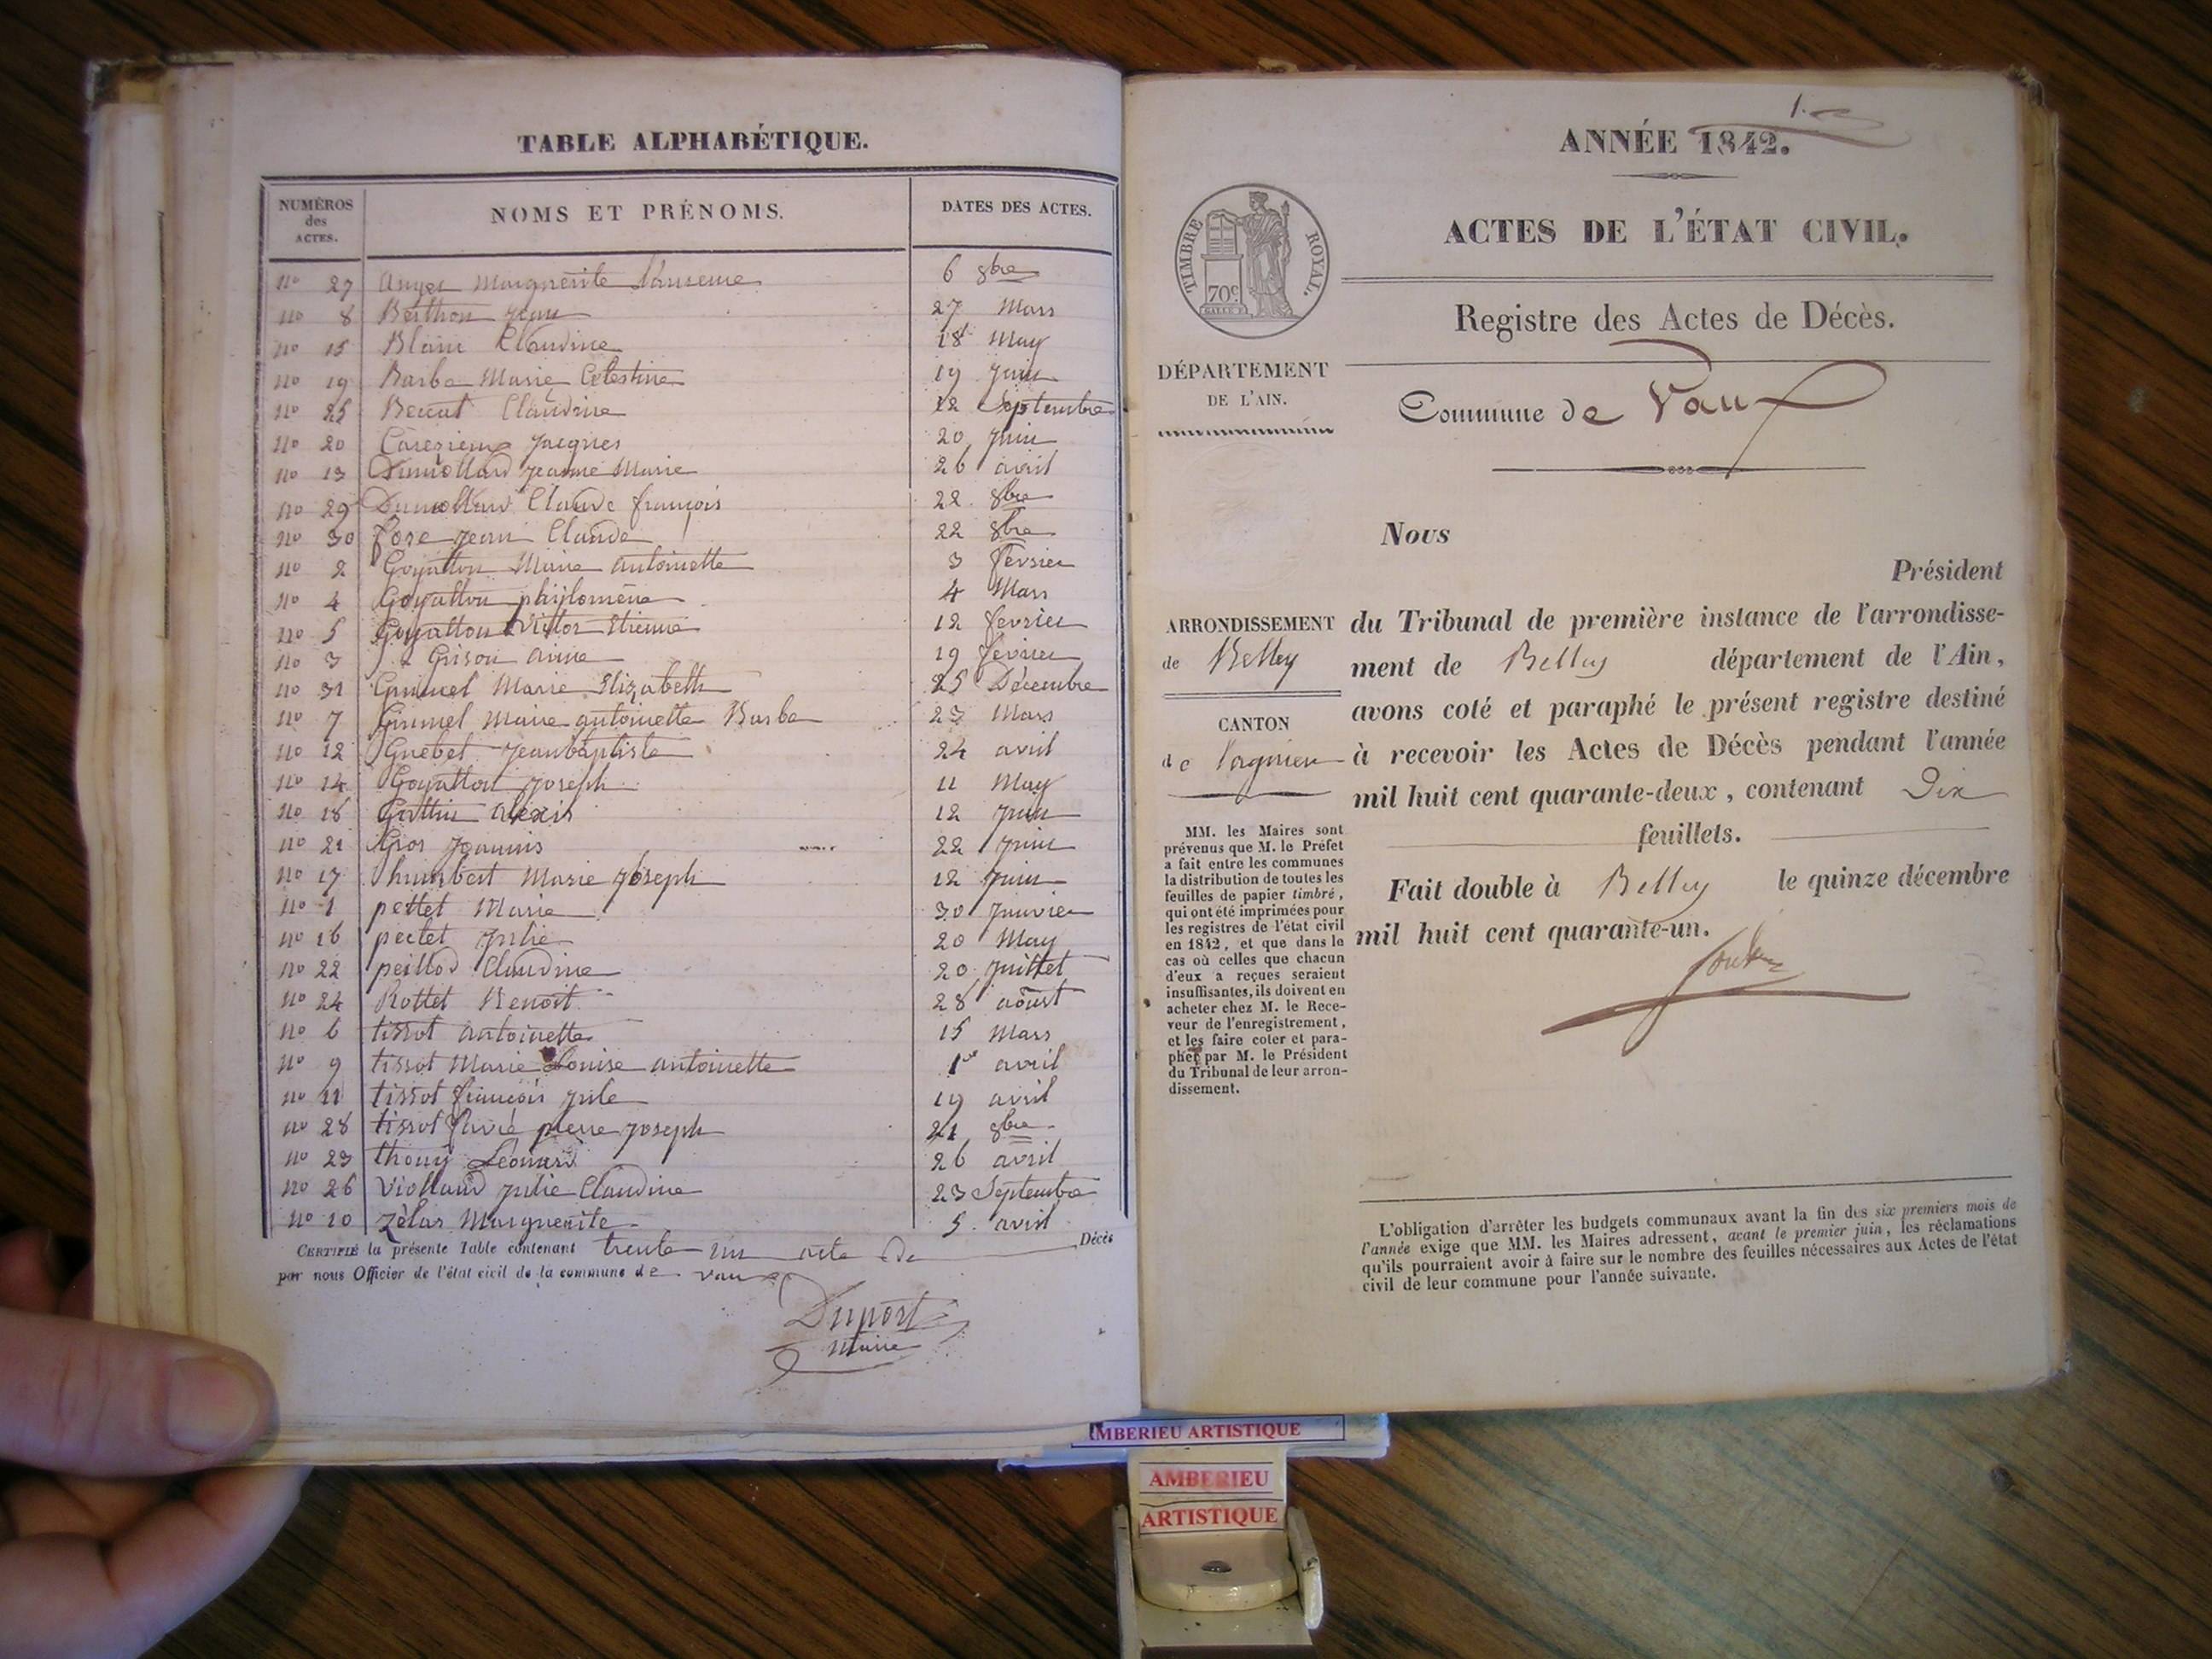 TABLE ALPHABÉTIQUE.
NUMÉROS des ACTES.
NOMS ET PRÉNOMS.
DATES DES ACTES.
no 27 Anger Marguerite 6 8bre
no 8 Berthon Jean 27 Mars
no 15 Blanc Claudine 18 May
no 19 Barbe Marie Celestine 19 Juin
no 25 Benoit Claudine 12 Septembre
no 20 Jacques 20 Juin
no 13 Dumollard Jeanne Marie 26 avril
no 29 Dumollard Claude françois 22 8bre
no 30 fore Jean Claude 22 8bre
no 2 Goyatton Marie antoinette 3 fevrier
no 4 Goyatton phylomène 4 Mars
no 5 Goyatton Victor Etienne 12 fevrier
no 3 Grison anne 19 fevrier
no 31 Grumel Marie Elizabeth 25 Décembre
no 7 Grumel Marie antoinette Barbe 23 Mars
no 12 Guebet Jeanbaptiste 24 avril
no 14 Goyatton Joseph 11 May
no 18 Gottin alexis 12 Juin
no 21 Gros Joannis 22 Juin
no 17 humbert Marie Joseph 12 Juin
no 1 pettet Marie 30 Janvier
no 16 pectet Julie 20 May
no 22 peillod Claudine 20 Juillet
no 24 Rottet Benoit 28 aoust
no 6 tissot antoinette 15 Mars
no 9 tissot Marie Louise antoinette 1er avril
no 11 tissot françois Jule 19 avril
no 28 tissot pierre Joseph 21 8bre
no 23 thouy Léonard 26 avril
no 26 Viollaud Julie Claudine 23 Septembre
no 10 zèlas Marguerite 5 avril
CERTIFIÉ la présente Table contenant trente un acte de Décès
par nous Officier de l'état civil de la commune de vaux
Duport
Maire
1.
ANNÉE 1842.
ACTES DE L'ÉTAT CIVIL.
TIMBRE ROYAL.
70c
Registre des Actes de Décès.
DÉPARTEMENT
DE L'AIN.
Commune de Vaux
Nous
Président
ARRONDISSEMENT
de Belley
CANTON
de Lagnieu
du Tribunal de première instance de l'arrondisse-
ment de Belley département de l'Ain,
avons coté et paraphé le présent registre destiné
à recevoir les Actes de Décès pendant l'année
mil huit cent quarante-deux, contenant Dix
feuillets.
Fait double à Belley le quinze décembre
mil huit cent quarante-un.
MM. les Maires sont
prévenus que M. le Préfet
a fait entre les communes
la distribution de toutes les
feuilles de papier timbré,
qui ont été imprimées pour
les registres de l'état civil
en 1842, et que dans le
cas où celles que chacun
d'eux a reçues seraient
insuffisantes, ils doivent en
acheter chez M. le Rece-
veur de l'enregistrement,
et les faire coter et para-
pher par M. le Président
du Tribunal de leur arron-
dissement.
L'obligation d'arrêter les budgets communaux avant la fin des six premiers mois de
l'année exige que MM. les Maires adressent, avant le premier juin, les réclamations
qu'ils pourraient avoir à faire sur le nombre des feuilles nécessaires aux Actes de l'état
civil de leur commune pour l'année suivante.
MBERIEU ARTISTIQUE
AMBERIEU
ARTISTIQUE